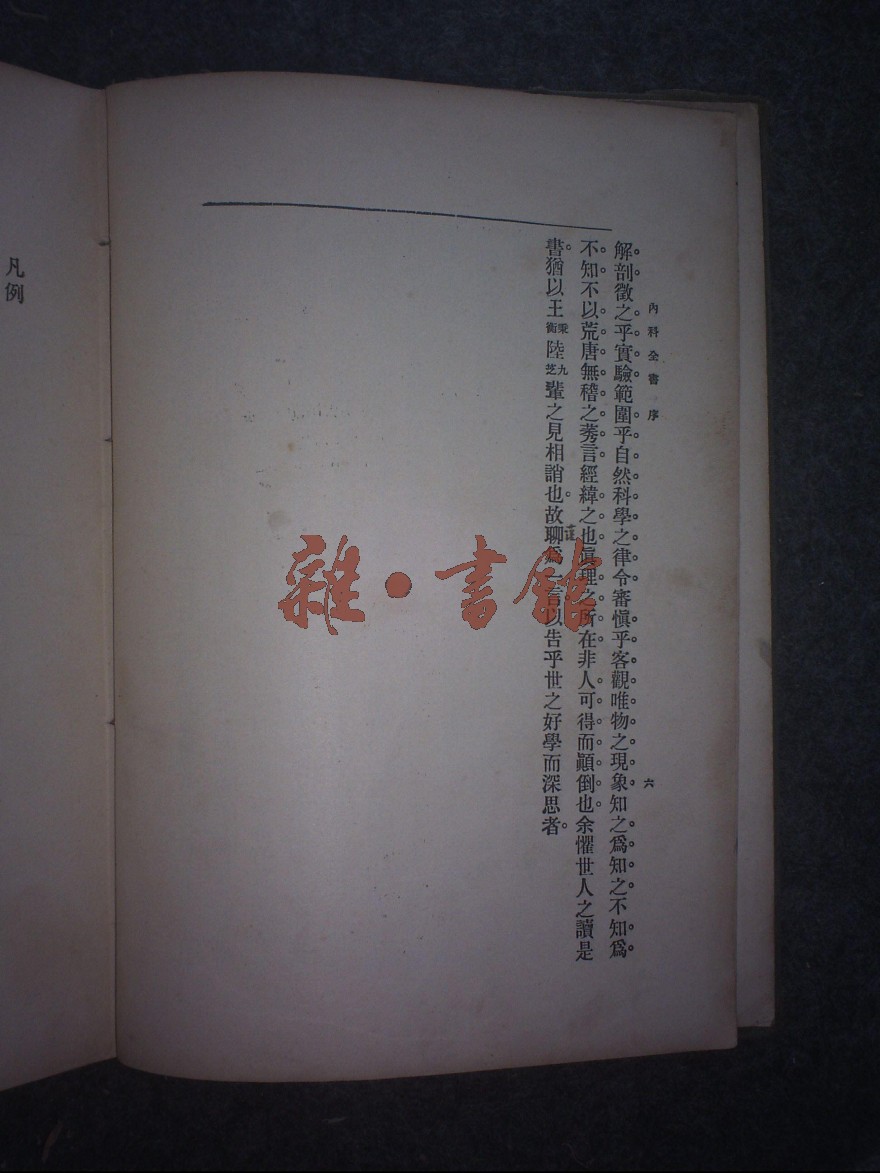 內科全書 序 六
解剖徵之乎實驗範圍乎自然科學之律令審愼乎客觀唯物之現象知之爲知之不知爲
不知不以荒唐無稽之莠言經緯之也眞理之所在非人可得而顚倒也余懼世人之讀是
書猶以王秉衡陸九芝輩之見相誚也故聊爲一言以告乎世之好學而深思者。
凡例
雜·書館